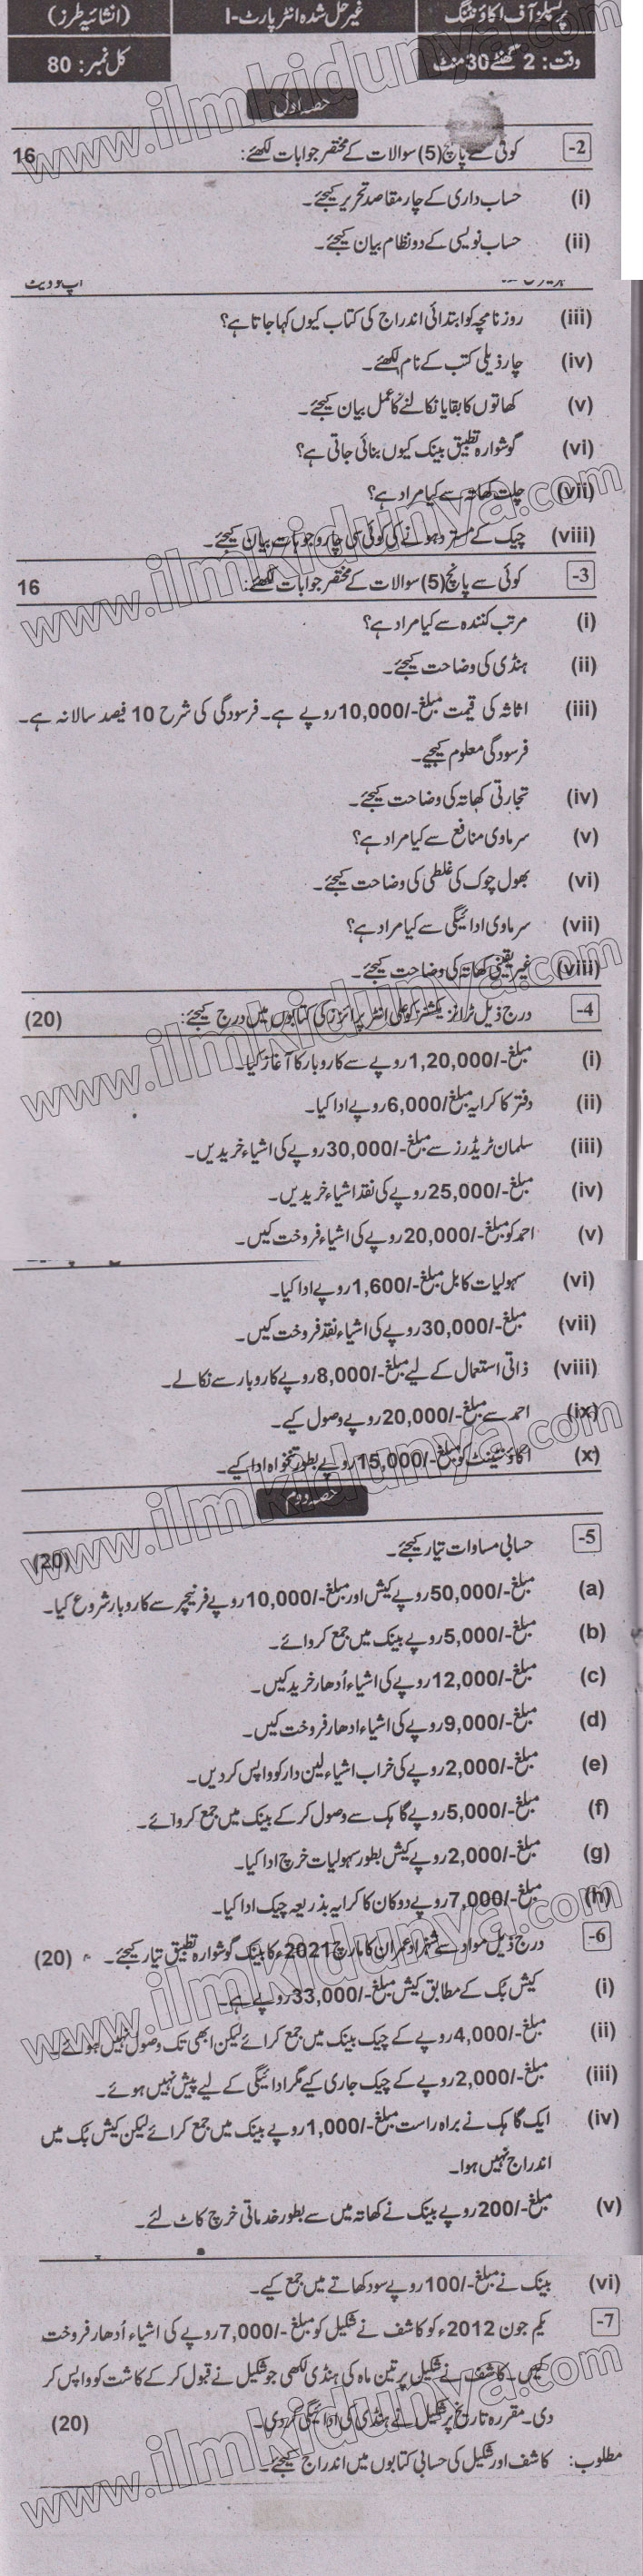 پرنسپلز آف اکاؤنٹنگ غیر حل شدہ انٹر پارٹ-I (انشائیہ طرز)
وقت: 2 گھنٹے 30 منٹ کل نمبر: 80
حصہ اول
2- کوئی سے پانچ (5) سوالات کے مختصر جوابات لکھئے: 16
(i) حساب داری کے چار مقاصد تحریر کیجئے۔
(ii) حساب نویسی کے دو نظام بیان کیجئے۔
(iii) روزنامچہ کو ابتدائی اندراج کی کتاب کیوں کہا جاتا ہے؟
(iv) چار ذیلی کتب کے نام لکھئے۔
(v) کھاتوں کا بقایا نکالنے کا عمل بیان کیجئے۔
(vi) گوشوارہ تطبیق بینک کیوں بنائی جاتی ہے؟
(vii) چلت کھاتہ سے کیا مراد ہے؟
(viii) چیک کے مسترد ہونے کی کوئی سی چار وجوہات بیان کیجئے۔
3- کوئی سے پانچ (5) سوالات کے مختصر جوابات لکھئے: 16
(i) مرتب کنندہ سے کیا مراد ہے؟
(ii) ہنڈی کی وضاحت کیجئے۔
(iii) اثاثہ کی قیمت مبلغ -/10,000 روپے ہے۔ فرسودگی کی شرح 10 فیصد سالانہ ہے۔
فرسودگی معلوم کیجیے۔
(iv) تجارتی کھاتہ کی وضاحت کیجئے۔
(v) سرماوی منافع سے کیا مراد ہے؟
(vi) بھول چوک کی غلطی کی وضاحت کیجئے۔
(vii) سرماوی ادائیگی سے کیا مراد ہے؟
(viii) غیر یقینی کھاتہ کی وضاحت کیجئے۔
4- درج ذیل ٹرانزیکشنز کو علی انٹر پرائزز کی کتابوں میں درج کیجئے: (20)
(i) مبلغ -/1,20,000 روپے سے کاروبار کا آغاز کیا۔
(ii) دفتر کا کرایہ مبلغ -/6,000 روپے ادا کیا۔
(iii) سلمان ٹریڈرز سے مبلغ -/30,000 روپے کی اشیاء خریدیں۔
(iv) مبلغ -/25,000 روپے کی نقد اشیاء خریدیں۔
(v) احمد کو مبلغ -/20,000 روپے کی اشیاء فروخت کیں۔
(vi) سہولیات کا بل مبلغ -/1,600 روپے ادا کیا۔
(vii) مبلغ -/30,000 روپے کی اشیاء نقد فروخت کیں۔
(viii) ذاتی استعمال کے لیے مبلغ -/8,000 روپے کاروبار سے نکالے۔
(ix) احمد سے مبلغ -/20,000 روپے وصول کیے۔
(x) اکاؤنٹینٹ کو مبلغ -/15,000 روپے بطور تنخواہ ادا کیے۔
حصہ دوم
5- حسابی مساوات تیار کیجئے۔ (20)
(a) مبلغ -/50,000 روپے کیش اور مبلغ -/10,000 روپے فرنیچر سے کاروبار شروع کیا۔
(b) مبلغ -/5,000 روپے بینک میں جمع کروائے۔
(c) مبلغ -/12,000 روپے کی اشیاء اُدھار خرید کیں۔
(d) مبلغ -/9,000 روپے کی اشیاء ادھار فروخت کیں۔
(e) مبلغ -/2,000 روپے کی خراب اشیاء لین دار کو واپس کر دیں۔
(f) مبلغ -/5,000 روپے گاہک سے وصول کر کے بینک میں جمع کروائے۔
(g) مبلغ -/2,000 روپے کیش بطور سہولیات خرچ ادا کیا۔
(h) مبلغ -/7,000 روپے دوکان کا کرایہ بذریعہ چیک ادا کیا۔
6- درج ذیل مواد سے شہزاد عمران کا مارچ 2021ء کا بینک گوشوارہ تطبیق تیار کیجئے۔ (20)
(i) کیش بک کے مطابق کیش مبلغ -/33,000 روپے ہے۔
(ii) مبلغ -/4,000 روپے کے چیک بینک میں جمع کرائے لیکن ابھی تک وصول نہیں ہوئے۔
(iii) مبلغ -/2,000 روپے کے چیک جاری کیے مگر ادائیگی کے لیے پیش نہیں ہوئے۔
(iv) ایک گاہک نے براہ راست مبلغ -/1,000 روپے بینک میں جمع کرائے لیکن کیش بک میں
اندراج نہیں ہوا۔
(v) مبلغ -/200 روپے بینک نے کھاتہ میں سے بطور خدماتی خرچ کاٹ لئے۔
(vi) بینک نے مبلغ -/100 روپے سود کھاتے میں جمع کیے۔
7- یکم جون 2012ء کو کاشف نے شکیل کو مبلغ -/7,000 روپے کی اشیاء اُدھار فروخت
کیں۔ کاشف نے شکیل پر تین ماہ کی ہنڈی لکھی جو شکیل نے قبول کر کے کاشت کو واپس کر
دی۔ مقررہ تاریخ پر شکیل نے ہنڈی کی ادائیگی کر دی۔ (20)
مطلوب: کاشف اور شکیل کی حسابی کتابوں میں اندراج کیجئے۔
www.ilmkidunya.com
www.ilmkidunya.com
www.ilmkidunya.com
www.ilmkidunya.com
www.ilmkidunya.com
www.ilmkidunya.com